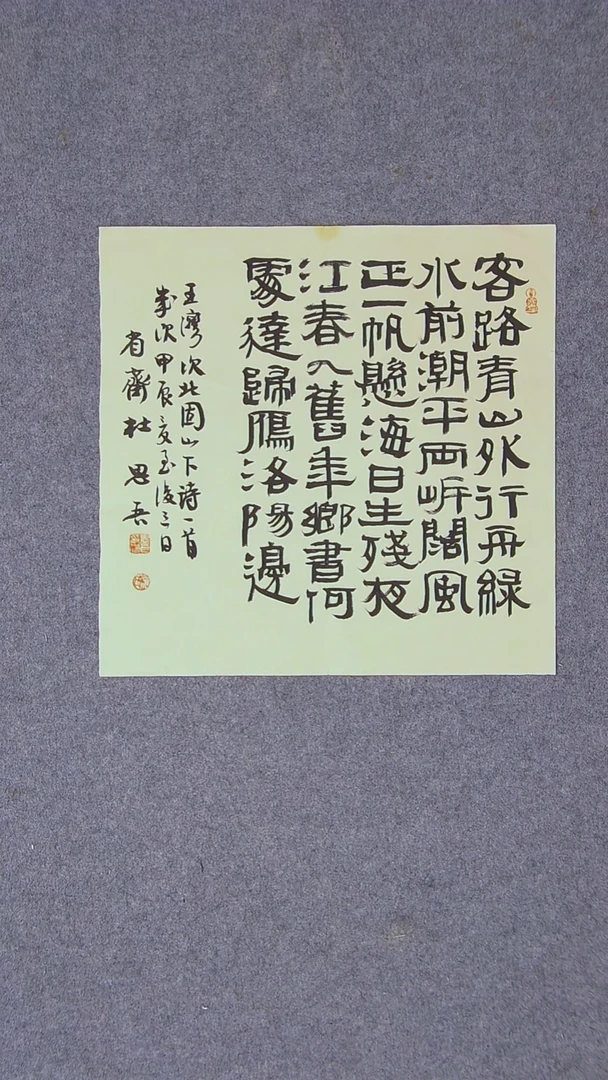 客路青山外行舟綠
水前潮平兩岸闊風
正一帆懸海日生殘夜
江春入舊年鄉書何
處達歸鴈洛陽邊
王灣次北固山下詩一首
歲次甲辰夏至後三日
省齋杜思吾